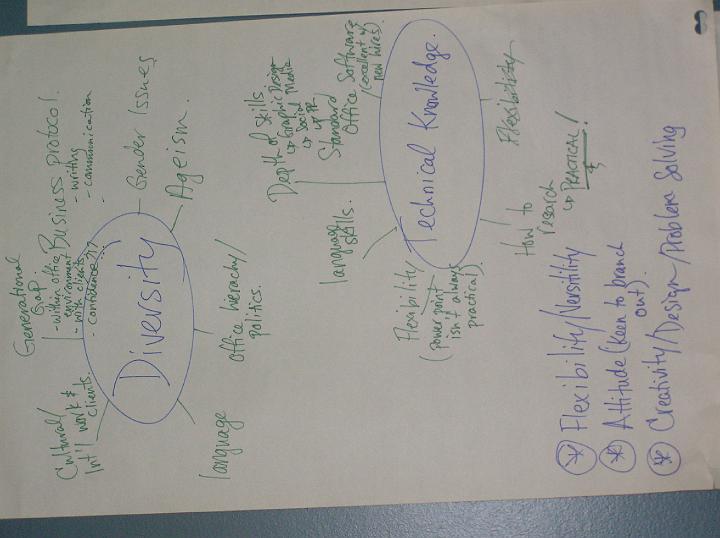 Diversity
Cultural/
Int'l work &
clients.
Generational
Gap.
- within office
environment
- with clients
- confidence???
Business protocol.
- writing
- communication
- Gender Issues
Ageism.
Office hierachy/
politics.
language
Technical Knowledge.
language
skills.
Depth of skills.
↳ Graphic Design
↳ Social Media
↳ PR
Standard
Office Software
(excellent w/
new hires).
Flexibility
(power point
isn't always
practical).
How to
research
↳ PRACTICAL!
Flexibility
Flexibility/Verstility
Attitude (Keen to branch
out).
Creativity/Design/Problem Solving